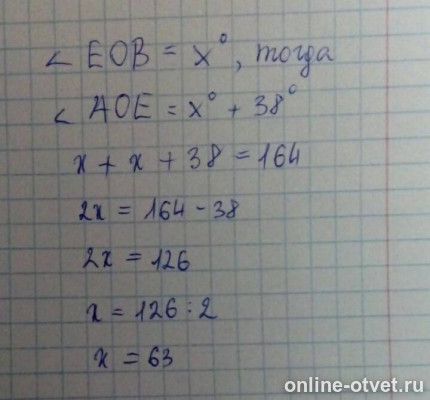 ∠ EOB = x°, тогда
∠ AOE = x° + 38°
x + x + 38 = 164
2x = 164 - 38
2x = 126
x = 126 : 2
x = 63
online-otvet.ru